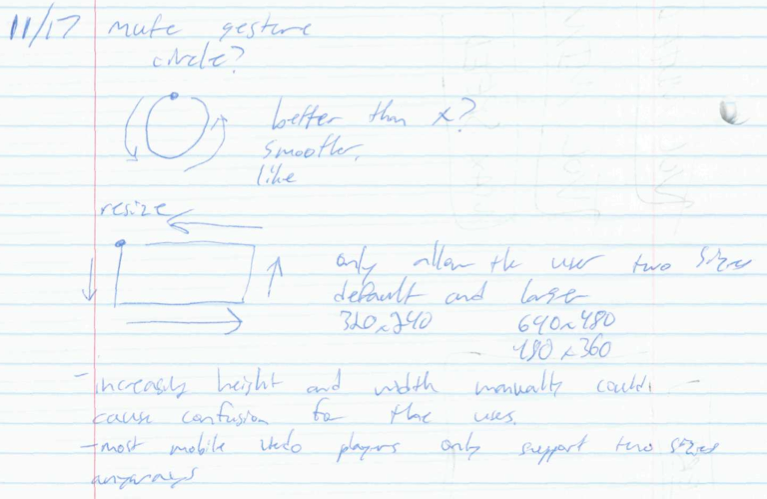 11/17 mute gesture
circle?
better than x?
smoother,
like
resize
only allow the user two sizes
default and larger
320x240 640x480
480x360
- increasing height and width manually could
cause confusion for the user.
- most mobile video players only support two sizes
anyways